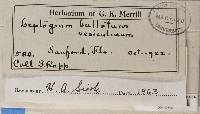 Herbarium of G. K. Merrill
Leptogium bullatum
vesiculosum
Sanford, Fla. Oct. 1922
Coll. S. Rapp
H. A. Sierk Date 1963